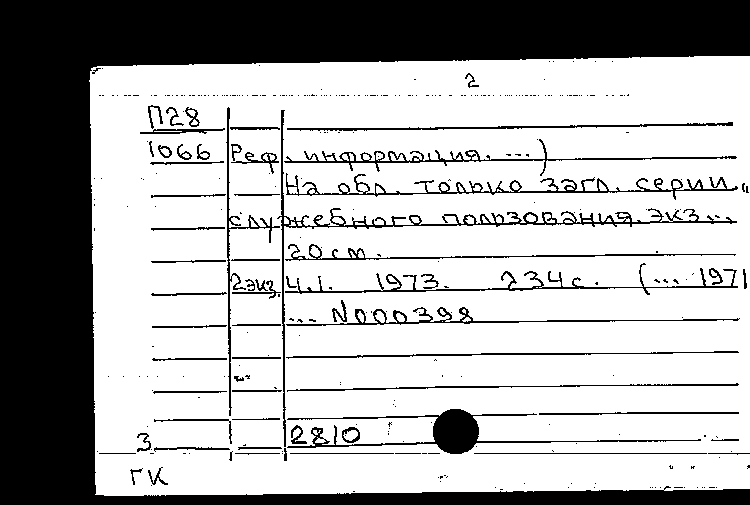 2
П28
1066 Реф. информация. ...)
На обл. только загл. серии. „
служебного пользования. экз...
20 см.
2экз. Ч.1. 1973. 234 с. (... 1971
... N000398
2810
3
ГК